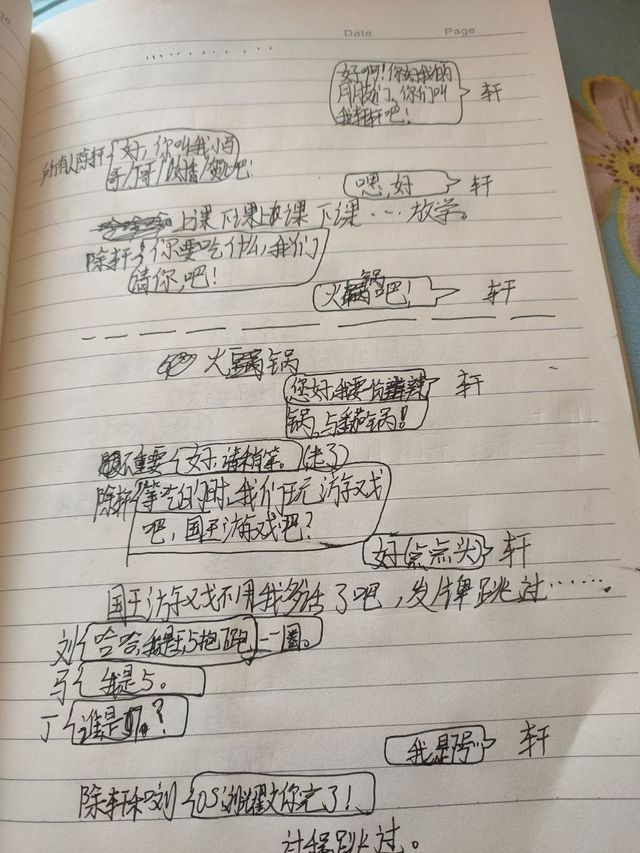 Date Page
好啊！你好我的
朋友们，你们叫
我轩轩吧！
轩
所有人除轩
好，你叫我小
哥/丁哥/
嗯，好
轩
上课下课上课下课……放学。
除轩
你要吃什么，我们
请你，吧！
火锅吧！
轩
火锅
您好，我要
辣
锅，与番茄锅！
轩
不重要
好，请稍等。(走了)
除轩
等吃的时，我们玩游戏
吧，国王游戏吧？
好(点点头)
轩
国王游戏不用我多话了吧，发牌跳过……
刘
哈哈，我是王，5抱
跑一圈。
马
我是5。
丁
谁是
？
我是
轩
除轩和刘
OS刘耀文你完了！
过程跳过。